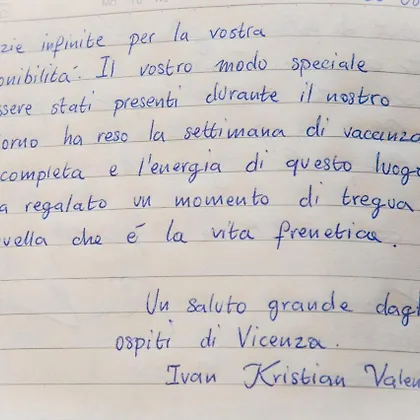 zie infinite per la vostra
onibilità. Il vostro modo speciale
ssere stati presenti durante il nostro
iorno ha reso la settimana di vaccenza
completa e l'energia di questo luogo
a regalato un momento di tregua
vella che é la vita frenetica.
Un saluto grande dagl
ospiti di Vicenza.
Ivan Kristian Valen